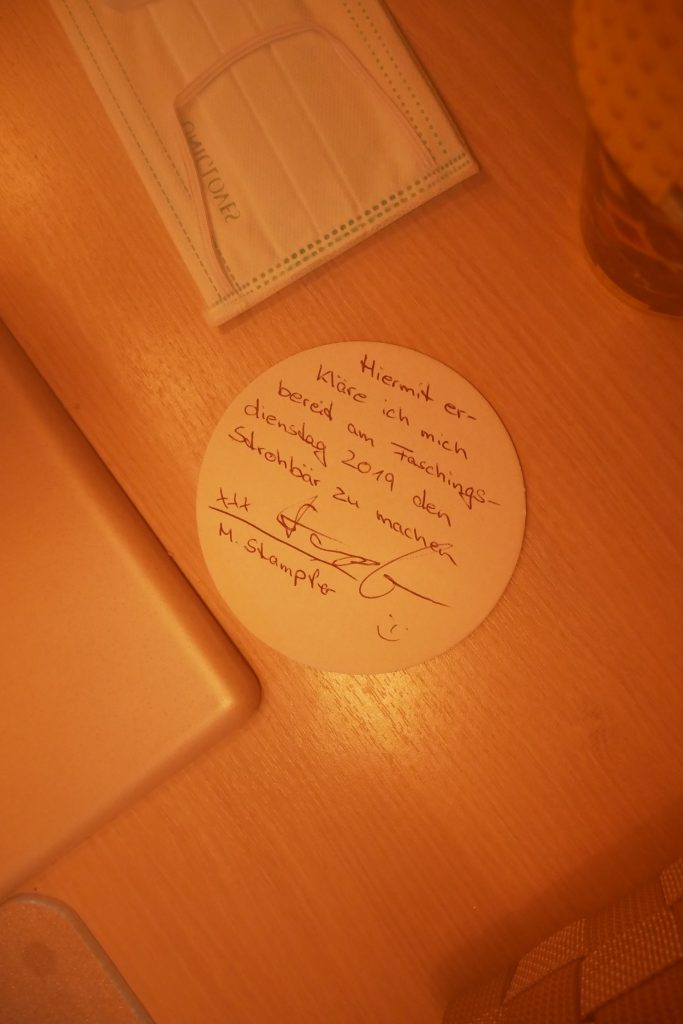 Hiermit er-
kläre ich mich
bereit am Faschings-
dienstag 2019 den
Strohbär zu machen
xxx
M. Stampfer
:)